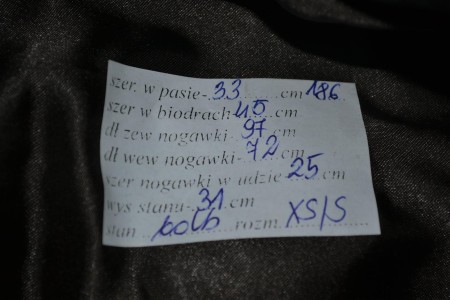 szer. w pasie-33.......cm 186
szer w biodrach 45.....cm
dł zew nogawki-97.cm
dł wew nogawki-72.cm
szer nogawki w udzie-25.cm
wys stanu-31.cm
stan ............rozm. XS/S